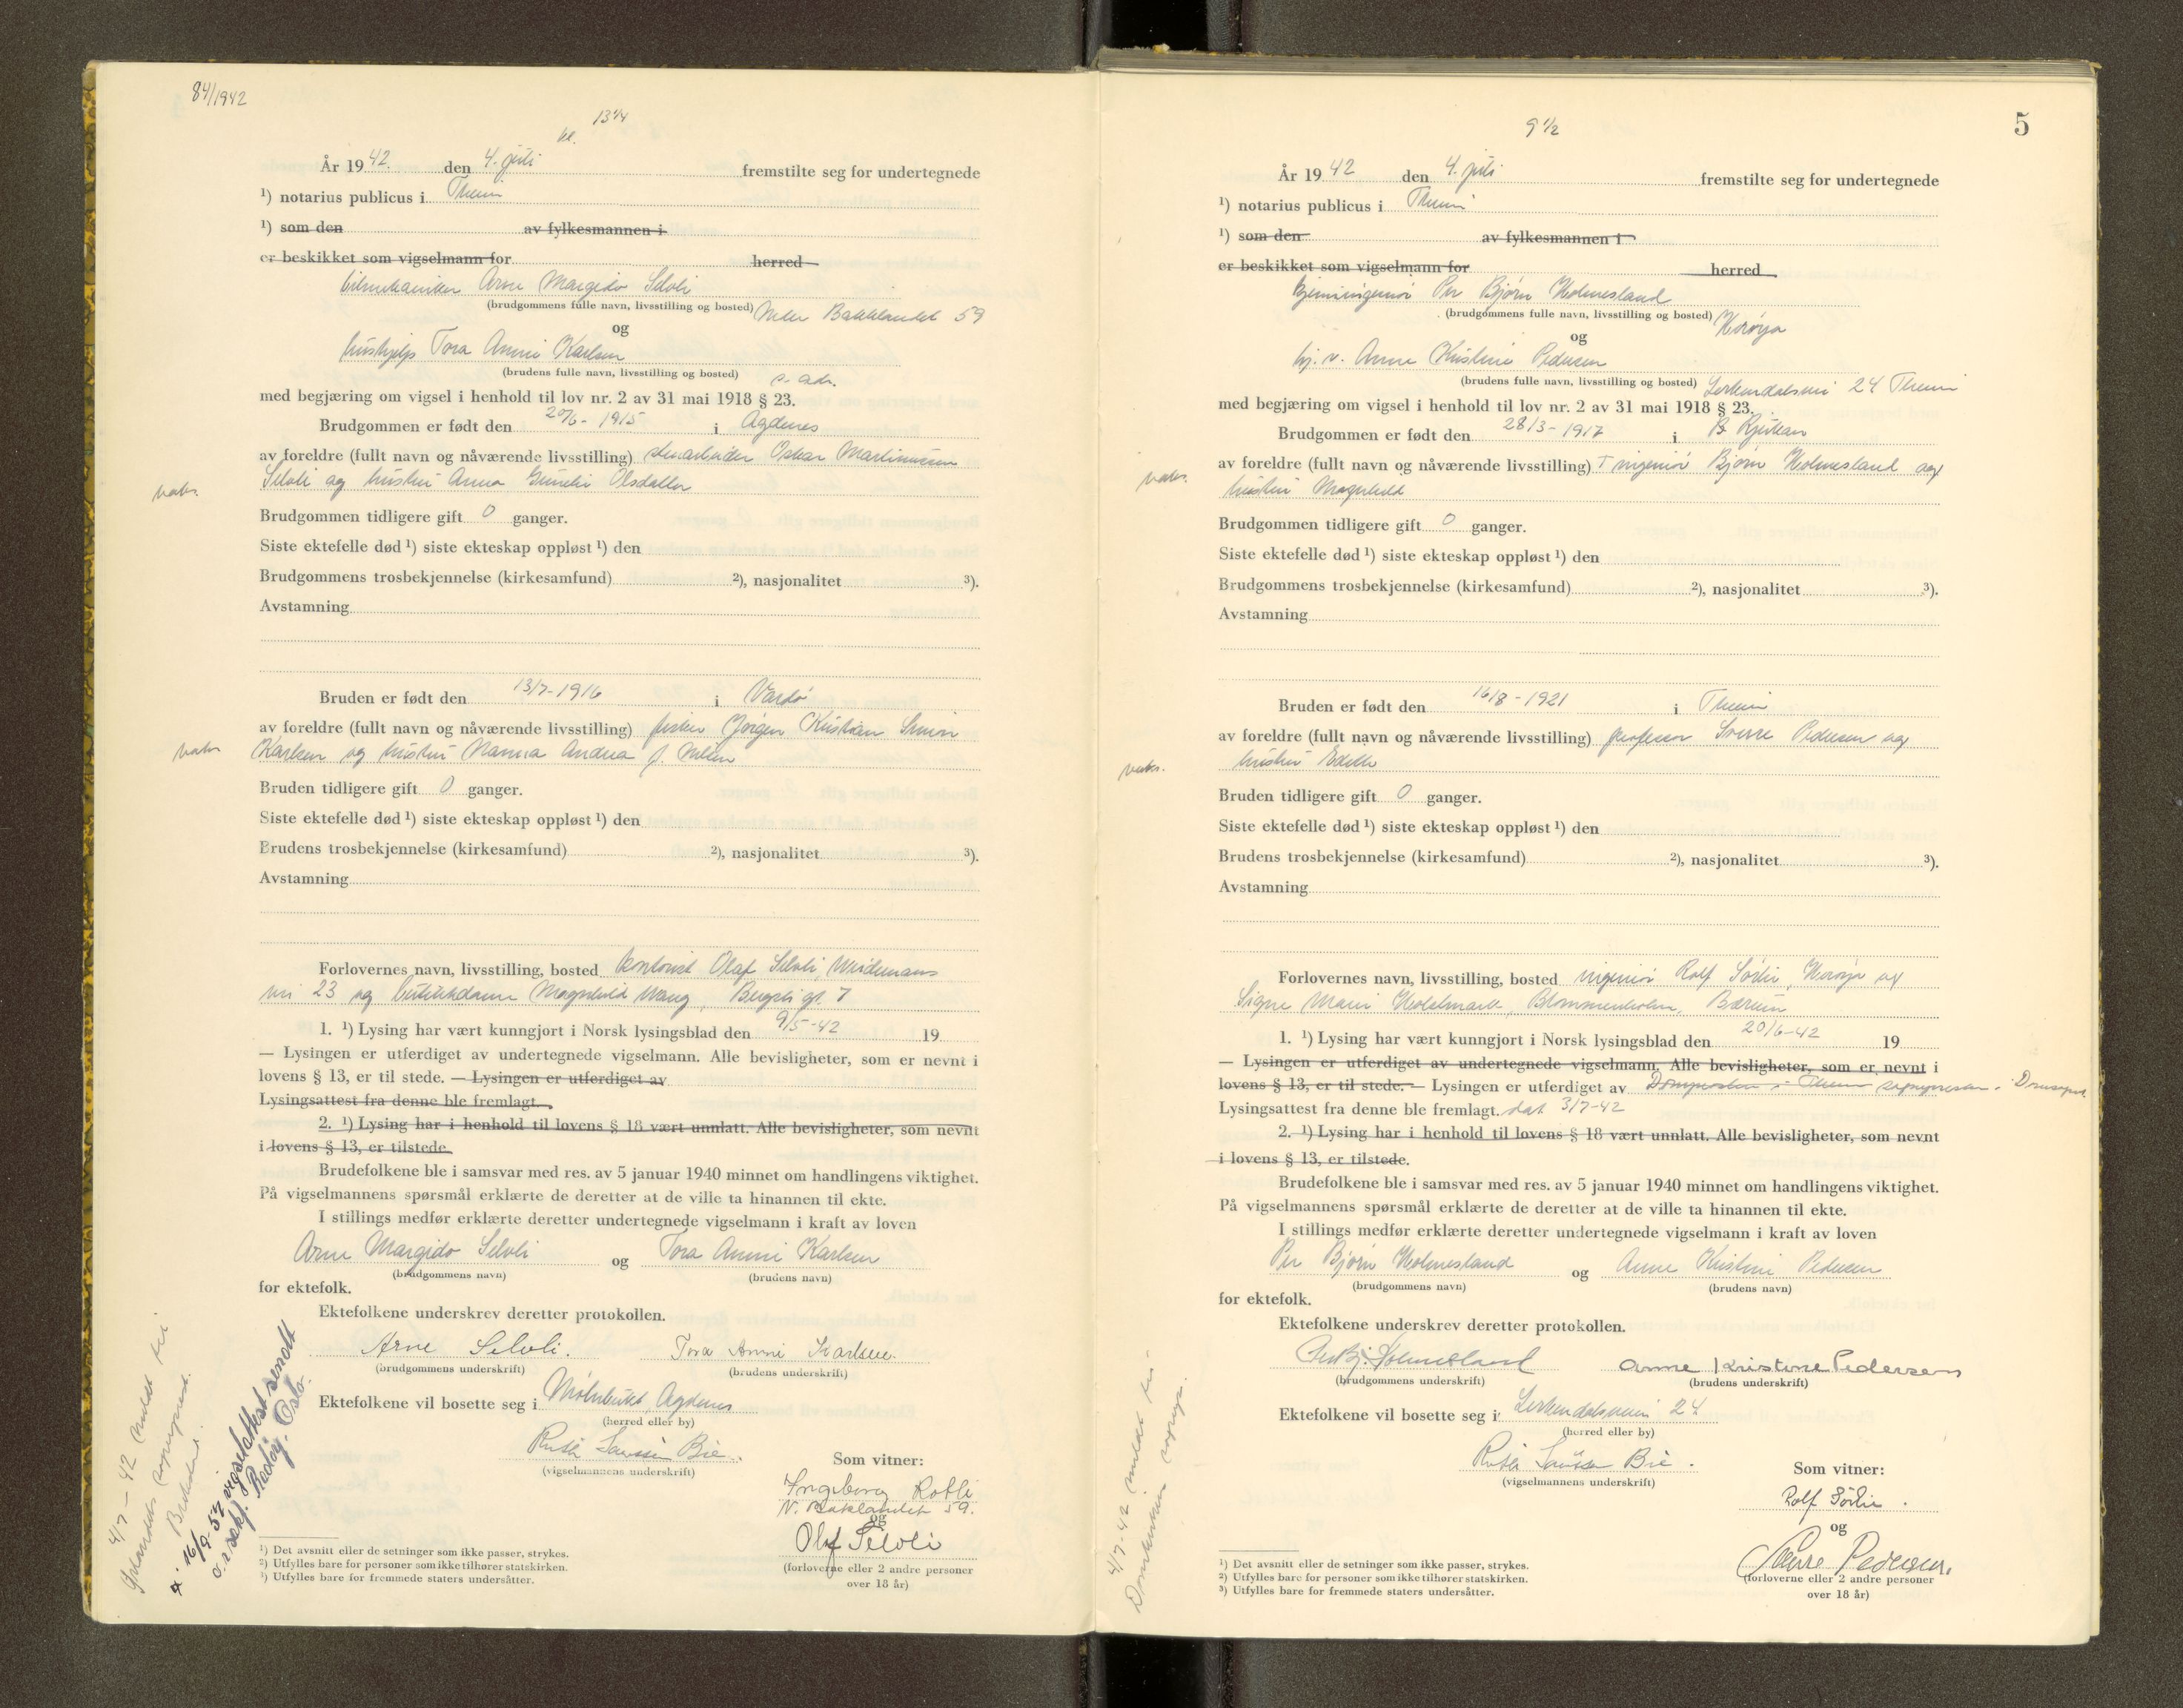 84/1942
kl. 13 1/4
År 19 42. den 4. juli fremstilte seg for undertegnede
¹) notarius publicus i Theim
¹) som den av fylkesmannen i
er beskikket som vigselmann for herred
bilmekaniker Arne Margido Selvli
(brudgommens fulle navn, livsstilling og bosted) Nedre Bakklandet 59
og
hushjelp Tora Anni Karlsen
(brudens fulle navn, livsstilling og bosted) s. adr.
med begjæring om vigsel i henhold til lov nr. 2 av 31 mai 1918 § 23.
Brudgommen er født den 20/6 - 1915 i Agdenes
av foreldre (fullt navn og nåværende livsstilling) stenarbeider Oskar Martinussen
Selvli og hustru Anna Gurelie Olsdatter
vaks.
Brudgommen tidligere gift 0 ganger.
Siste ektefelle død ¹) siste ekteskap oppløst ¹) den
Brudgommens trosbekjennelse (kirkesamfund) ²), nasjonalitet ³).
Avstamning
Bruden er født den 13/7-1916 i Vardø
av foreldre (fullt navn og nåværende livsstilling) fisker Jørgen Kristian
Karlsen og hustru Nanna Andrea f. Nilsen
vaks
Bruden tidligere gift 0 ganger.
Siste ektefelle død ¹) siste ekteskap oppløst ¹) den
Brudens trosbekjennelse (kirkesamfund) ²), nasjonalitet ³).
Avstamning
Forlovernes navn, livsstilling, bosted kontorist Olaf Selvli, Weidemans
vei 23 og butikkdame Magnhild Wang, Bergsli gt. 7
1. ¹) Lysing har vært kunngjort i Norsk lysingsblad den 9/5-42 19
— Lysingen er utferdiget av undertegnede vigselmann. Alle bevisligheter, som er nevnt i
lovens § 13, er til stede. — Lysingen er utferdiget av
Lysingsattest fra denne ble fremlagt.
2. ¹) Lysing har i henhold til lovens § 18 vært unnlatt. Alle bevisligheter, som nevnt
i lovens § 13, er tilstede.
Brudefolkene ble i samsvar med res. av 5 januar 1940 minnet om handlingens viktighet.
På vigselmannens spørsmål erklærte de deretter at de ville ta hinannen til ekte.
I stillings medfør erklærte deretter undertegnede vigselmann i kraft av loven
Arne Margido Selvli og Tora Anni Karlsen
(brudgommens navn) (brudens navn)
for ektefolk.
Ektefolkene underskrev deretter protokollen.
Arne Selvli. Tora Anni Karlsen.
(brudgommens underskrift) (brudens underskrift)
Ektefolkene vil bosette seg i Mølnbukt, Agdenes
(herred eller by)
Ruth Sausen Bie.
(vigselmannens underskrift)
Som vitner:
Ingeborg Rotli
N. Baklandet 59.
og
Olaf Selvli
(forloverne eller 2 andre personer
over 18 år)
4/7-42 meldt til
sogneprest.
x 16/9-57 vigselattest sendt
Oslo.
¹) Det avsnitt eller de setninger som ikke passer, strykes.
²) Utfylles bare for personer som ikke tilhører statskirken.
³) Utfylles bare for fremmede staters undersåtter.
5
9 1/2
År 19 42 den 4. juli fremstilte seg for undertegnede
¹) notarius publicus i Theim
¹) som den av fylkesmannen i
er beskikket som vigselmann for herred
kjemiingeniør Per Bjørn Holmesland
(brudgommens fulle navn, livsstilling og bosted) Herøya
og
hj. v. Anne Kristine Pedersen
(brudens fulle navn, livsstilling og bosted) Lerkendalsveien 24 Theim
med begjæring om vigsel i henhold til lov nr. 2 av 31 mai 1918 § 23.
Brudgommen er født den 28/3 - 1917 i Rjukan
av foreldre (fullt navn og nåværende livsstilling) ingeniør Bjørn Holmesland og
hustru Magnhild
vaks.
Brudgommen tidligere gift 0 ganger.
Siste ektefelle død ¹) siste ekteskap oppløst ¹) den
Brudgommens trosbekjennelse (kirkesamfund) ²), nasjonalitet ³).
Avstamning
Bruden er født den 16/8 - 1921 i Theim
av foreldre (fullt navn og nåværende livsstilling) professor Sverre Pedersen og
hustru Edith
vaks.
Bruden tidligere gift 0 ganger.
Siste ektefelle død ¹) siste ekteskap oppløst ¹) den
Brudens trosbekjennelse (kirkesamfund) ²), nasjonalitet ³).
Avstamning
Forlovernes navn, livsstilling, bosted ingeniør Rolf Sørlie, Herøya og
Signe Marie Holtsmark, Blommenholm, Bærum
1. ¹) Lysing har vært kunngjort i Norsk lysingsblad den 20/6-42 19
— Lysingen er utferdiget av undertegnede vigselmann. Alle bevisligheter, som er nevnt i
lovens § 13, er til stede. — Lysingen er utferdiget av Domprosten i Theim sogneprest i
Lysingsattest fra denne ble fremlagt. dat 3/7-42
2. ¹) Lysing har i henhold til lovens § 18 vært unnlatt. Alle bevisligheter, som nevnt
i lovens § 13, er tilstede.
Brudefolkene ble i samsvar med res. av 5 januar 1940 minnet om handlingens viktighet.
På vigselmannens spørsmål erklærte de deretter at de ville ta hinannen til ekte.
I stillings medfør erklærte deretter undertegnede vigselmann i kraft av loven
Per Bjørn Holmesland og Anne Kristine Pedersen
(brudgommens navn) (brudens navn)
for ektefolk.
Ektefolkene underskrev deretter protokollen.
Per Bj. Holmesland Anne Kristine Pedersen
(brudgommens underskrift) (brudens underskrift)
Ektefolkene vil bosette seg i Lerkendalsveien 24
(herred eller by)
Ruth Sausen Bie.
(vigselmannens underskrift)
Som vitner:
Rolf Sörlie.
og
Sverre Pedersen.
(forloverne eller 2 andre personer
over 18 år)
4/7-42 meldt til
Domkirken sognepr.
¹) Det avsnitt eller de setninger som ikke passer, strykes.
²) Utfylles bare for personer som ikke tilhører statskirken.
³) Utfylles bare for fremmede staters undersåtter.